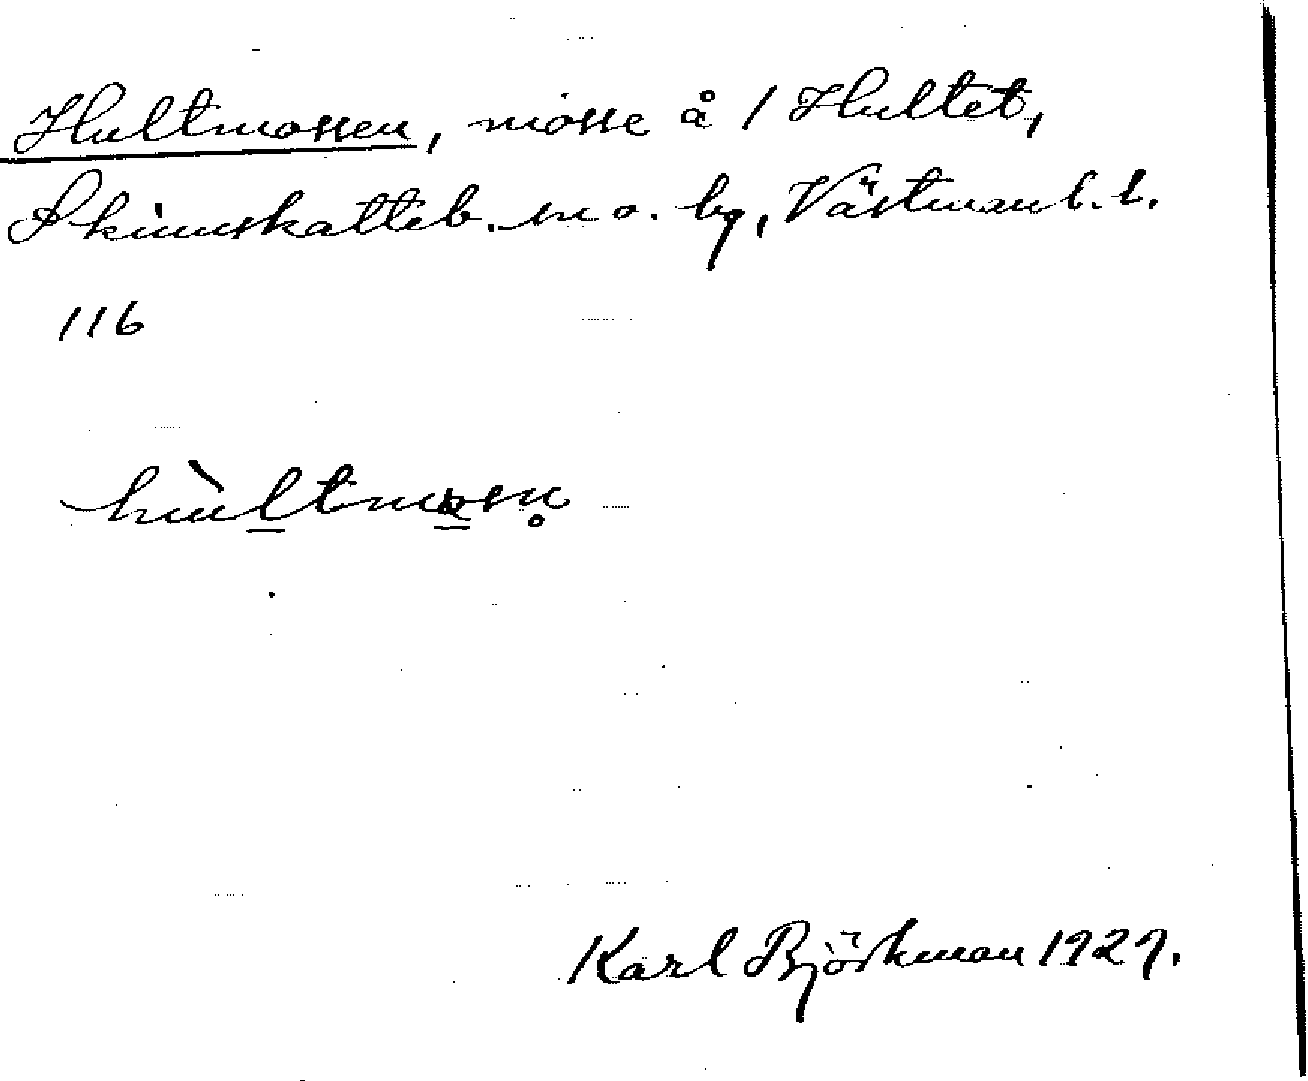 Hultmossen, mosse å 1 Hultet,
Skinnskatteb. sn o. bg, Västmanl. l.
116
hùltmosn̥
Karl Björkman 1929.